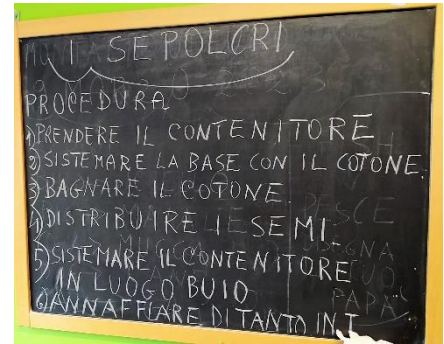 I SEPOLCRI
PROCEDURA
1) PRENDERE IL CONTENITORE
2) SISTEMARE LA BASE CON IL COTONE
3) BAGNARE IL COTONE
4) DISTRIBUIRE I SEMI
5) SISTEMARE IL CONTENITORE
IN LUOGO BUIO
6) ANNAFFIARE DI TANTO IN T
PESCE
PAPÀ